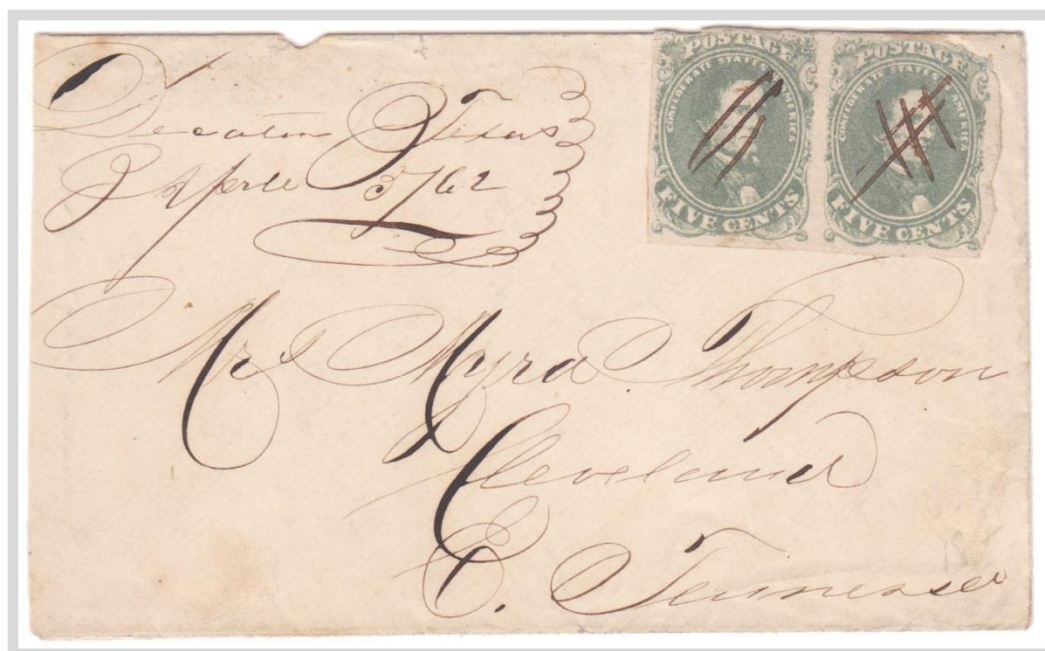 Decatur Texas
Aprle 3/62
POSTAGE
CONFEDERATE STATES AMERICA
FIVE CENTS
POSTAGE
CONFEDERATE STATES AMERICA
FIVE CENTS
Mrs Myra Thompson
Cleveland
E. Tennessee